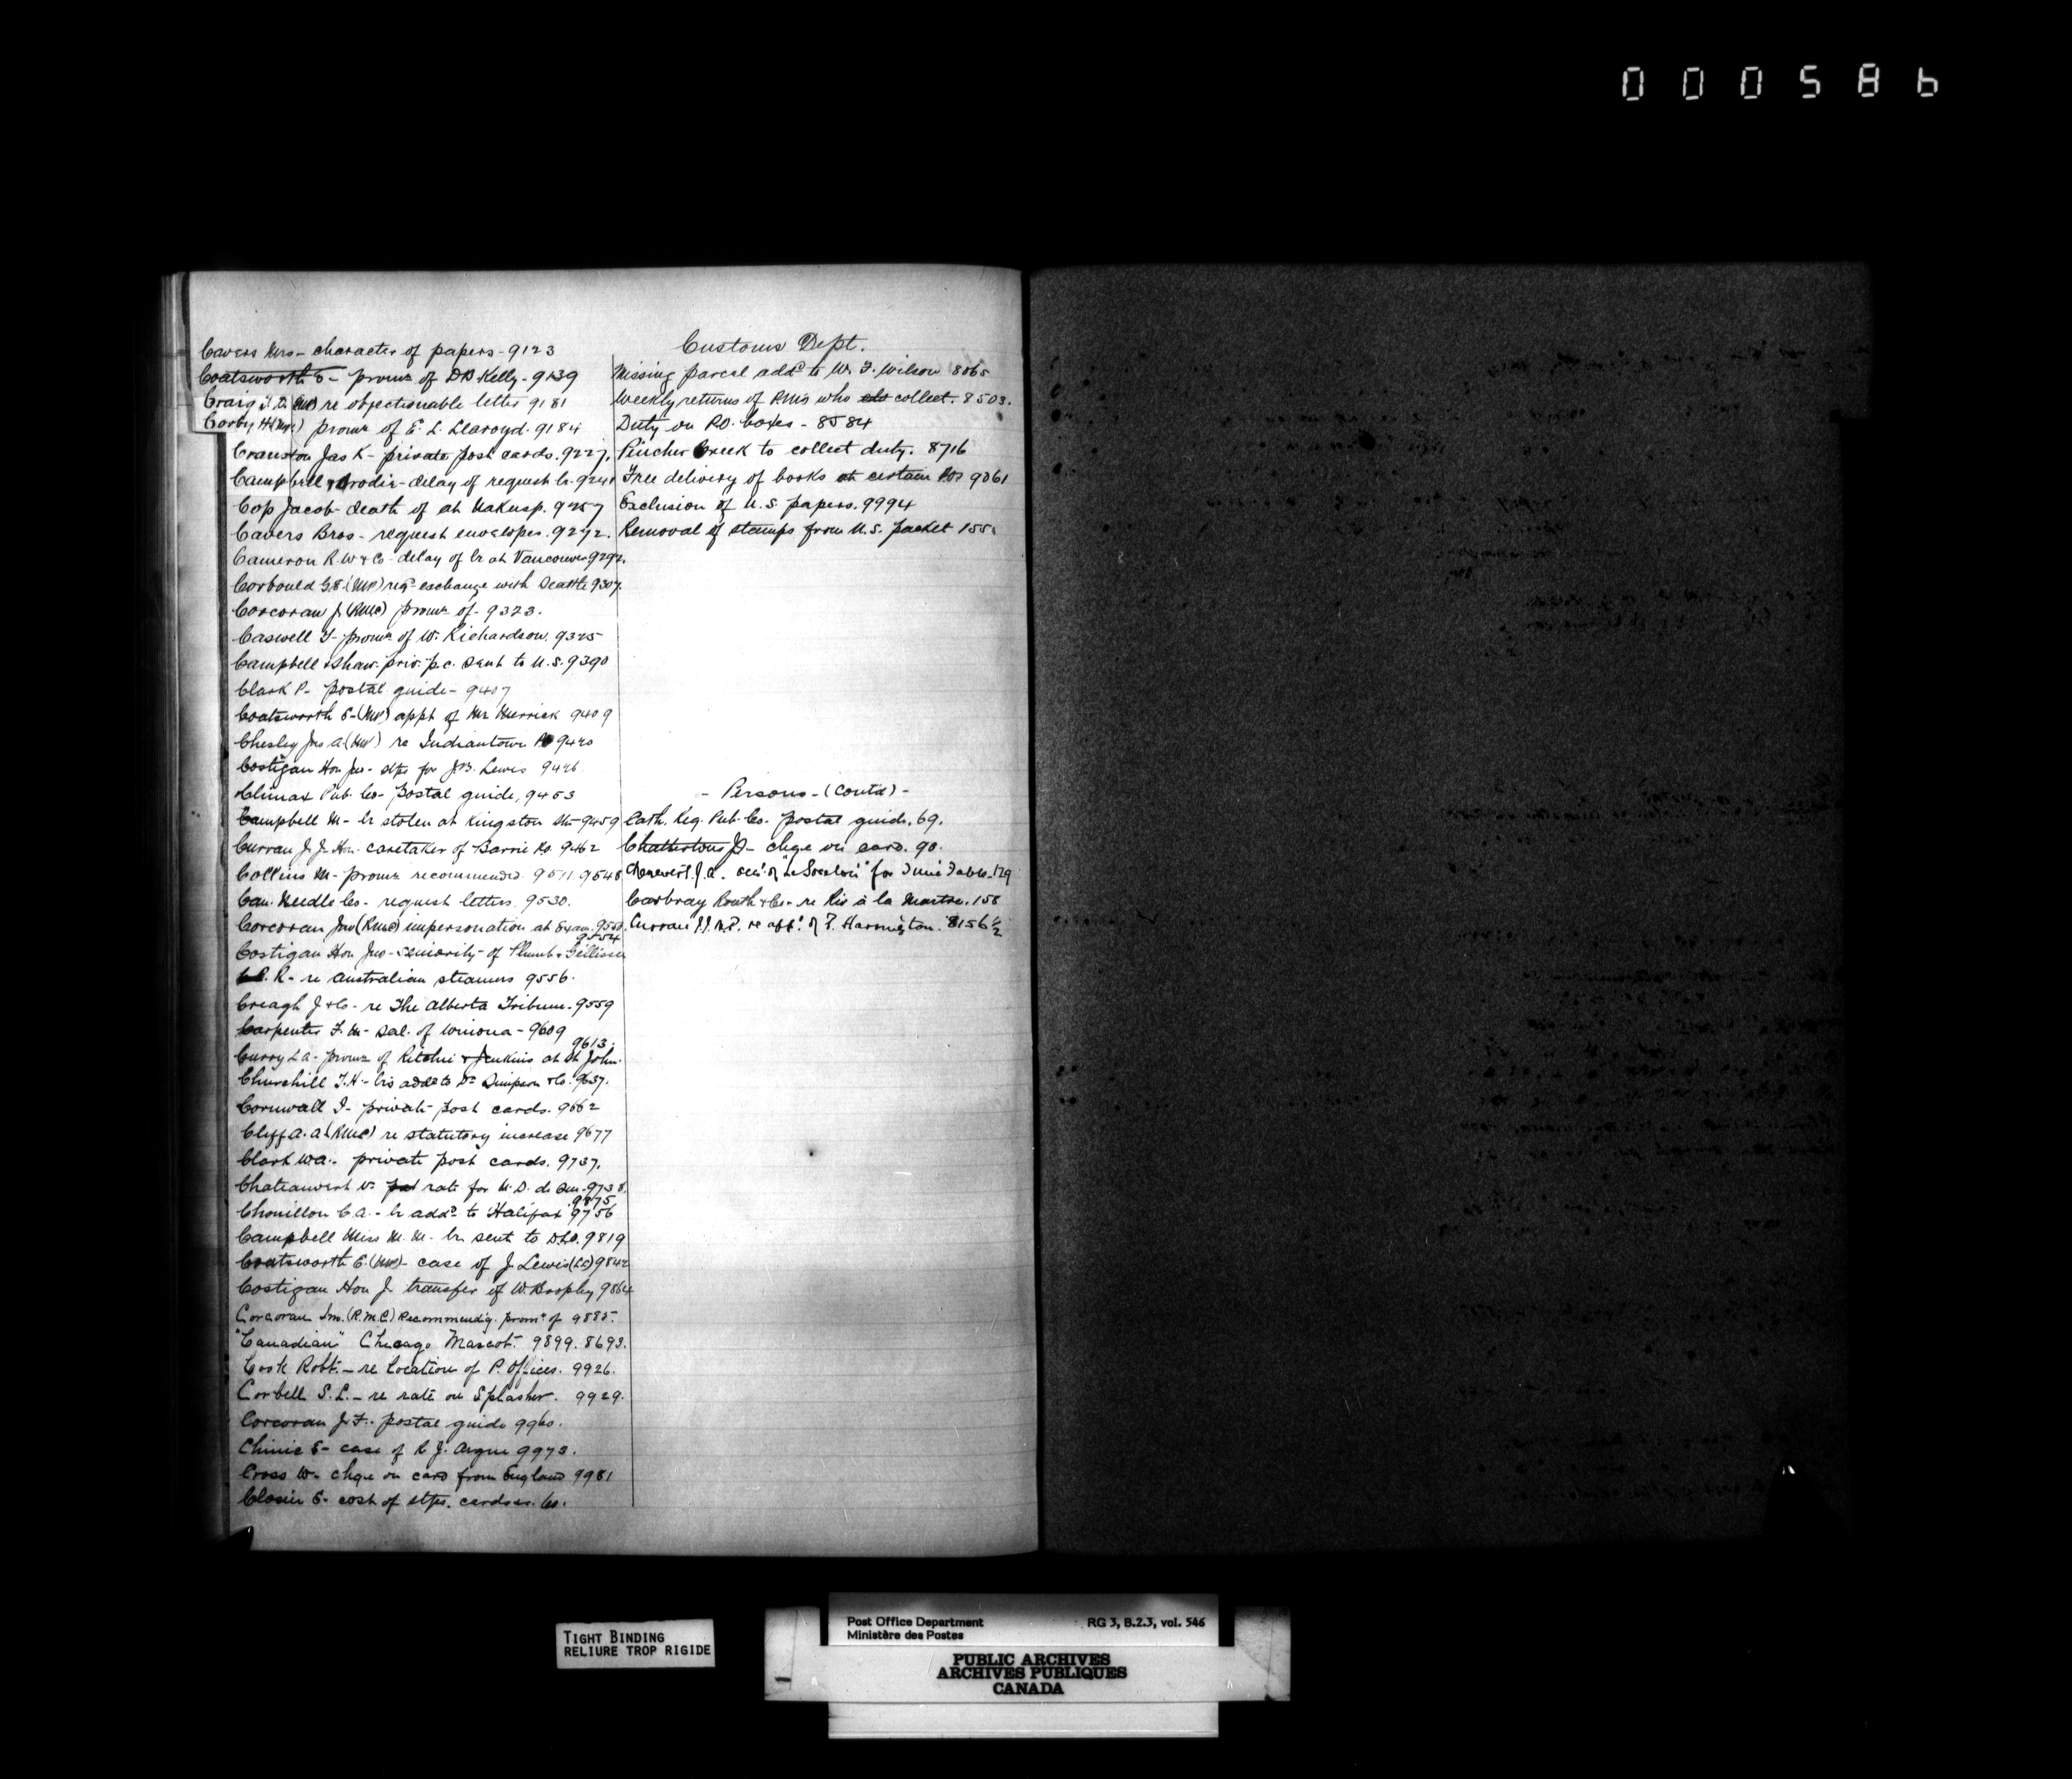 000586
Cavers Mrs - character of papers - 9123
Coatsworth E - promn of D B Kelly - 9139
Craig T. D. (MP) re objectionable letter 9181
Corby H (MP) promn of E. L. Llaroyd. 9184
Cranston Jas K - private post cards. 9227.
Campbell & Brodie - delay of request lr. 9241
Cop Jacob - death of at Nakusp. 9257
Cavers Bros - request envelopes. 9272.
Cameron R. W & Co - delay of lr at Vancouver 9292.
Corbould G E (MP) reqt exchange with Seattle 9307.
Corcoran J (RMC) promn of - 9323.
Caswell T - promn of W. Richardson. 9325
Campbell & Shaw - priv. p.c. sent to U.S. 9390
Clark P - postal guide - 9407
Coatsworth E - (MP) appt of Mr Merrick 9409
Chesley Jno A (MP) re Indiantown PO 9420
Costigan Hon Jno - stps for J B. Lewis 9426
Climax Pub. Co - Postal guide, 9453
Campbell M - lr stolen at Kingston Stn - 9459
Curran J. J. Hon. caretaker of Barrie Po. 9462
Collins M - promn recommended 9511. 9548
Can. Needle Co - request letters. 9530.
Corcoran Jno (RMC) impersonation at Exam. 9550.
9554
Costigan Hon Jno - seniority of Plumb &
C.P. R - re Australian steamers 9556.
Creagh J & Co - re The Alberta Tribune. 9559
Carpenter F. M - sal. of Winona - 9609
9613.
Curry L A - promn of Ritchie & Jenkins at St John.
Churchill T. H - lrs addd to Dr Simpson & Co. 9637.
Cornwall I - private post cards. 9662
Cliff A. A (RMC) re statutory increase 9677
Clark W A. - private post cards. 9737.
Chateauvert V. rate for N. D. de Que - 9738.
9875
Chouillon C A. - lr addd to Halifax 9756
Campbell Miss M. M - lr. sent to D.L.O. 9819
Coatsworth E. (MP) - case of J. Lewis (LC) 9842
Costigan Hon J. transfer of W. Brophy 9864
Corcoran Jno. (R.M.C) Recommendg. promn of 9885.
"Canadian" Chicago Mascot. 9899. 8693.
Cook Robt. - re location of P. Offices. 9926.
Corbell S. L. - re rate on Splasher. 9929.
Corcoran J. F. postal guide 9960.
Chinic E - case of R J. Argue 9973.
Cross W - chge on card from England 9981
Closier E - cost of stps. cards &c. 60.
Customs Dept.
Missing parcel addd to W. F. Wilson 8065
Weekly returns of PMs who collect. 8503.
Duty on P.O. boxes - 8584
Pincher Creek to collect duty. 8716
Free delivery of books at certain POs 9061
Exclusion of U.S. papers. 9994
Removal of stamps from U.S. packet 155.
- Persons - (Contd) -
Cath. Reg. Pub. Co. postal guide. 69.
Chatterton J - chge on card. 90.
J. A. for Time Table. 129
Carbray Routh & Co - re Riv à la Martre. 158
Curran J J. M.P. re appt. of F. Harrington. 8156½
TIGHT BINDING
RELIURE TROP RIGIDE
Post Office Department RG 3, B.2.3, vol. 546
Ministère des Postes
PUBLIC ARCHIVES
ARCHIVES PUBLIQUES
CANADA